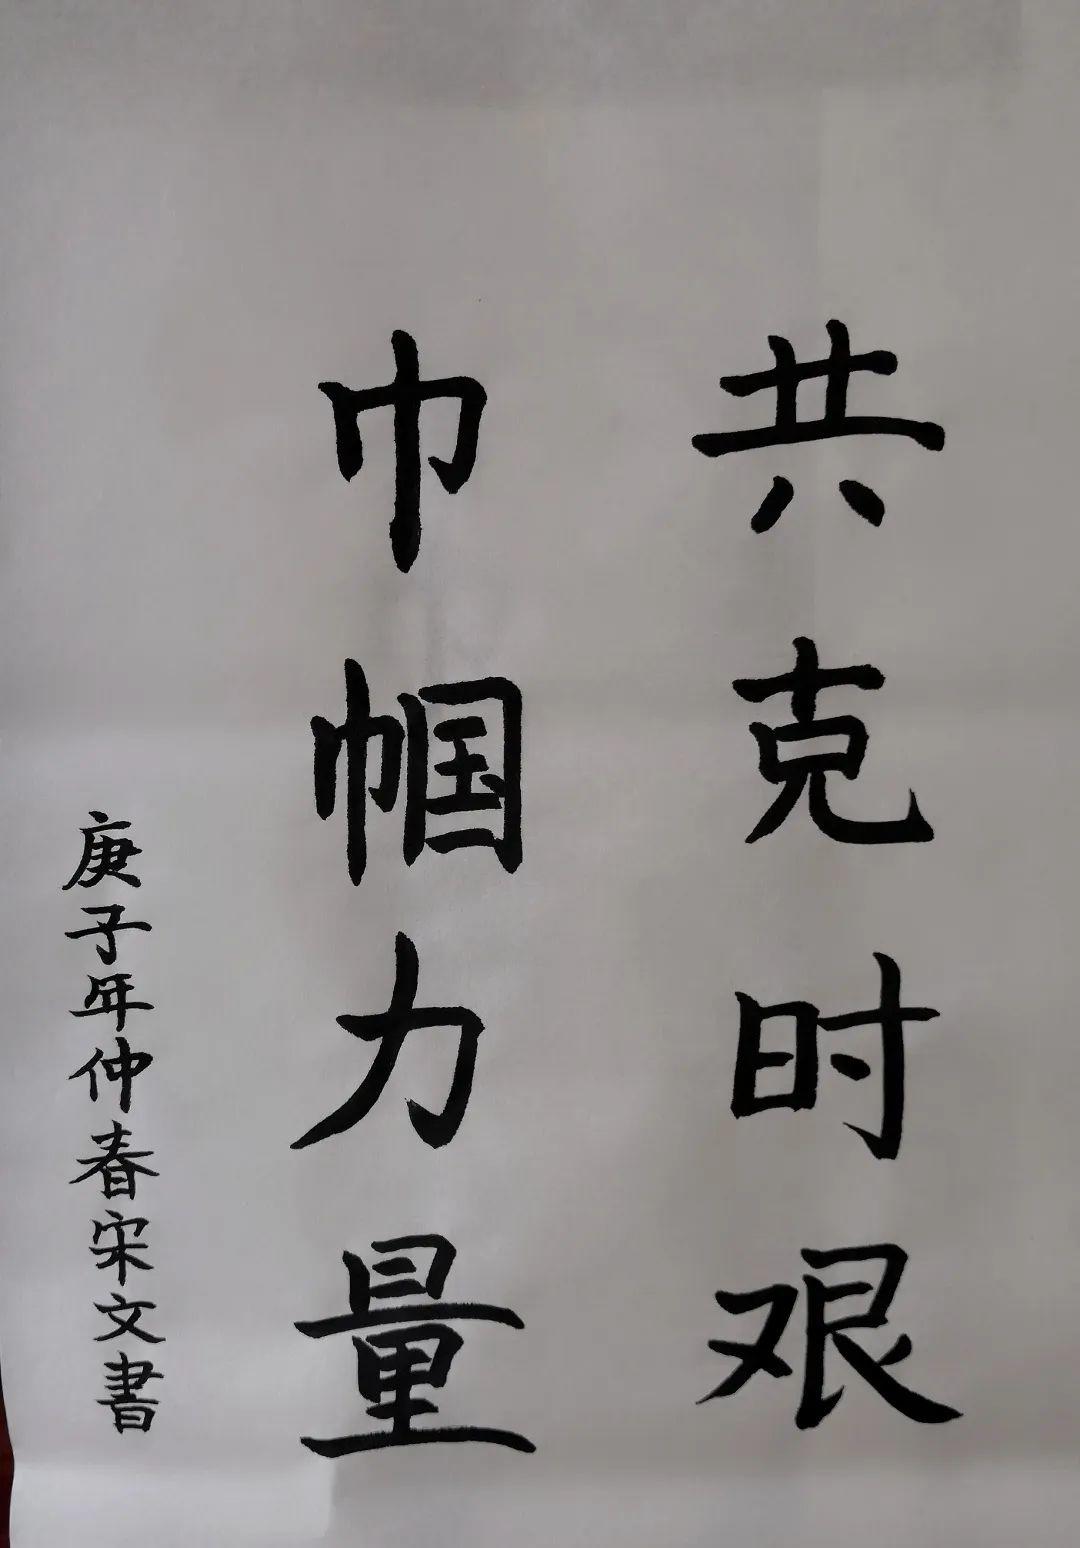 共克时艰
巾帼力量
庚子年仲春宋文書